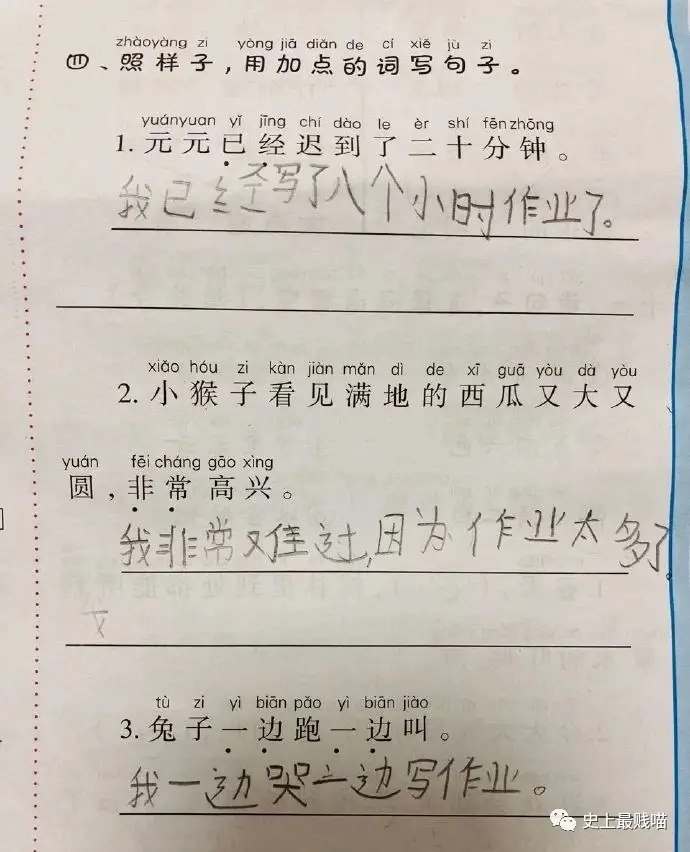 zhàoyàng zi yòng jiā diǎn de cí xiě jù zi
四、照样子，用加点的词写句子。
yuányuan yǐ jīng chí dào le èr shí fēn zhōng
1. 元元已经迟到了二十分钟。
我已经写了八个小时作业了。
xiǎo hóu zi kàn jiàn mǎn dì de xī guā yòu dà yòu
2. 小猴子看见满地的西瓜又大又
yuán fēi cháng gāo xìng
圆，非常高兴。
我非常难过,因为作业太多了。
tù zi yì biān pǎo yì biān jiào
3. 兔子一边跑一边叫。
我一边哭一边写作业。
史上最贱喵